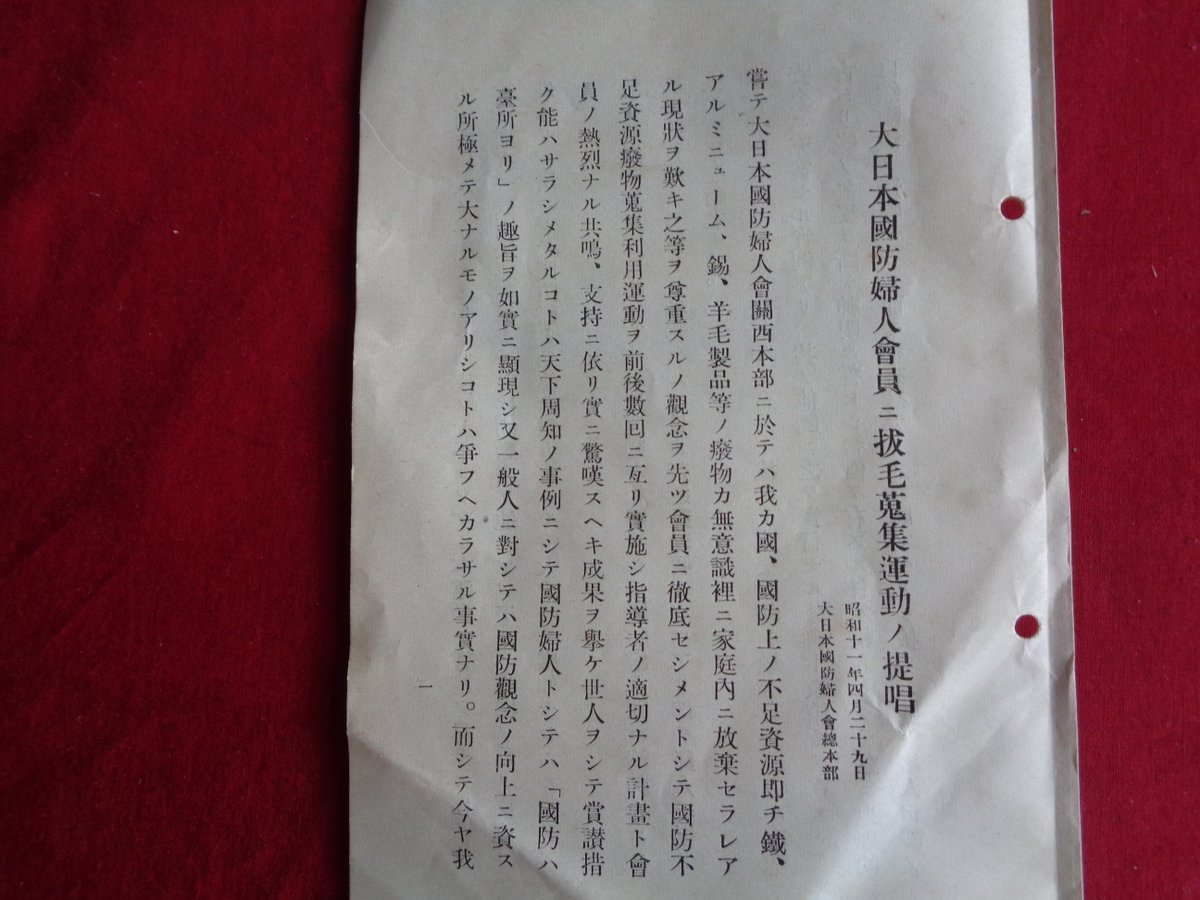 大日本國防婦人會員ニ拔毛蒐集運動ノ提唱
昭和十一年四月二十九日
大日本國防婦人會總本部
嘗テ大日本國防婦人會關西本部ニ於テハ我カ國、國防上ノ不足資源即チ鐵、
アルミニューム、錫、羊毛製品等ノ癈物カ無意識裡ニ家庭內ニ放棄セラレア
ル現狀ヲ歎キ之等ヲ尊重スルノ觀念ヲ先ツ會員ニ徹底セシメントシテ國防不
足資源癈物蒐集利用運動ヲ前後數回ニ亙リ實施シ指導者ノ適切ナル計畫ト會
員ノ熱烈ナル共鳴、支持ニ依リ實ニ驚嘆スヘキ成果ヲ擧ケ世人ヲシテ賞讃措
ク能ハサラシメタルコトハ天下周知ノ事例ニシテ國防婦人トシテハ「國防ハ
臺所ヨリ」ノ趣旨ヲ如實ニ顯現シ又一般人ニ對シテハ國防觀念ノ向上ニ資ス
ル所極メテ大ナルモノアリシコトハ爭フヘカラサル事實ナリ。而シテ今ヤ我
一